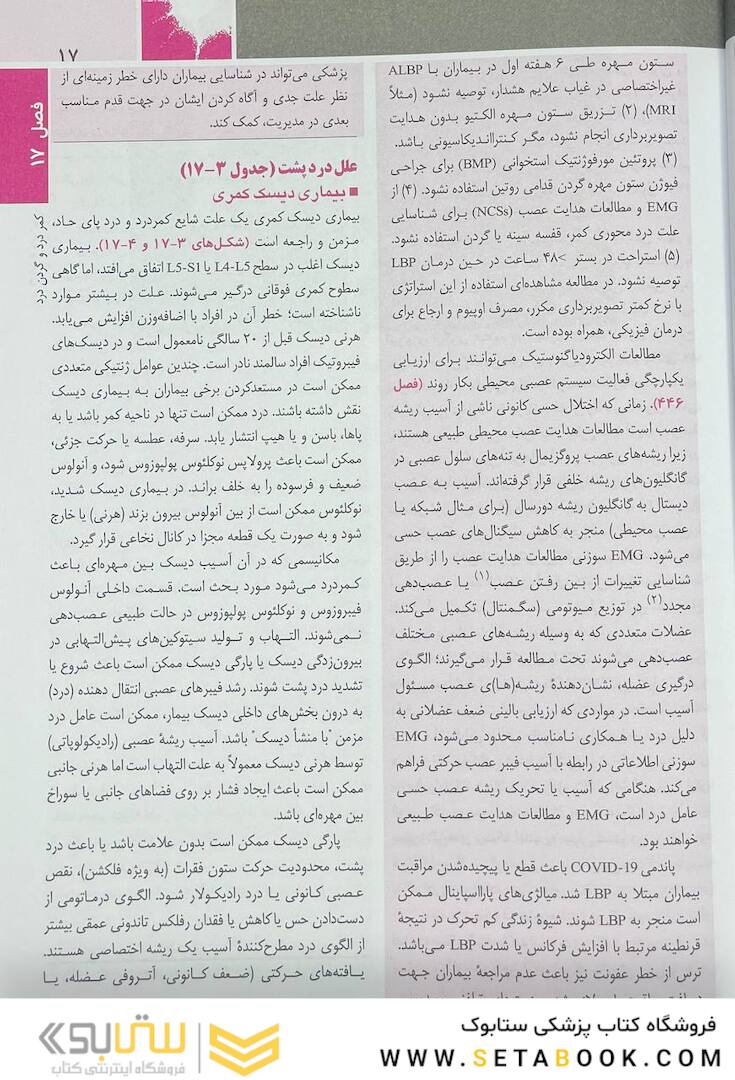 ۱۷
فصل ۱۷
کمر درد و گردن درد
ستون مهره طی ۶ هفته اول در بیماران با ALBP
غیراختصاصی در غیاب علایم هشدار، توصیه نشود (مثلاً
MRI)، (۲) تزریق ستون مهره الکتیو بدون هدایت
تصویربرداری انجام نشود، مگر کنترااندیکاسیونی باشد.
(۳) پروتئین مورفوژنتیک استخوانی (BMP) برای جراحی
فیوژن ستون مهره گردن قدامی روتین استفاده نشود. (۴) از
EMG و مطالعات هدایت عصب (NCSs) برای شناسایی
علت درد محوری کمر، قفسه سینه یا گردن استفاده نشود.
(۵) استراحت در بستر >۴۸ ساعت در حین درمان LBP
توصیه نشود. در مطالعه مشاهده‌ای استفاده از این استراتژی
با نرخ کمتر تصویربرداری مکرر، مصرف اوپیوم و ارجاع برای
درمان فیزیکی، همراه بوده است.
مطالعات الکترودیاگنوستیک می‌توانند برای ارزیابی
یکپارچگی فعالیت سیستم عصبی محیطی بکار روند (فصل
۴۴۶). زمانی که اختلال حسی کانونی ناشی از آسیب ریشه
عصب است مطالعات هدایت عصب محیطی طبیعی هستند،
زیرا ریشه‌های عصب پروگزیمال به تنه‌های سلول عصبی در
گانگلیون‌های ریشه خلفی قرار گرفته‌اند. آسیب به عصب
دیستال به گانگلیون ریشه دورسال (برای مثال شبکه یا
عصب محیطی) منجر به کاهش سیگنال‌های عصب حسی
می‌شود. EMG سوزنی مطالعات هدایت عصب را از طریق
شناسایی تغییرات از بین رفتن عصب(۱) یا عصب‌دهی
مجدد(۲) در توزیع میوتومی (سگمنتال) تکمیل می‌کند.
عضلات متعددی که به وسیله ریشه‌های عصبی مختلف
عصب‌دهی می‌شوند تحت مطالعه قرار می‌گیرند؛ الگوی
درگیری عضله، نشان‌دهندهٔ ریشه(ها)ی عصب مسئول
آسیب است. در مواردی که ارزیابی بالینی ضعف عضلانی به
دلیل درد یا همکاری نامناسب محدود می‌شود، EMG
سوزنی اطلاعاتی در رابطه با آسیب فیبر عصب حرکتی فراهم
می‌کند. هنگامی که آسیب یا تحریک ریشه عصب حسی
عامل درد است، EMG و مطالعات هدایت عصب طبیعی
خواهند بود.
پاندمی COVID-19 باعث قطع یا پیچیده‌شدن مراقبت
بیماران مبتلا به LBP شد. میالژی‌های پارااسپاینال ممکن
است منجر به LBP شوند. شیوهٔ زندگی کم تحرک در نتیجهٔ
قرنطینه مرتبط با افزایش فرکانس یا شدت LBP می‌باشد.
ترس از خطر عفونت نیز باعث عدم مراجعهٔ بیماران جهت
پزشکی می‌تواند در شناسایی بیماران دارای خطر زمینه‌ای از
نظر علت جدی و آگاه کردن ایشان در جهت قدم مناسب
بعدی در مدیریت، کمک کند.
علل درد پشت (جدول ۳-۱۷)
■ بیماری دیسک کمری
بیماری دیسک کمری یک علت شایع کمردرد و درد پای حاد،
مزمن و راجعه است (شکل‌های ۳-۱۷ و ۴-۱۷). بیماری
دیسک اغلب در سطح L4-L5 یا L5-S1 اتفاق می‌افتد، اما گاهی
سطوح کمری فوقانی درگیر می‌شوند. علت در بیشتر موارد
ناشناخته است؛ خطر آن در افراد با اضافه‌وزن افزایش می‌یابد.
هرنی دیسک قبل از ۲۰ سالگی نامعمول است و در دیسک‌های
فیبروتیک افراد سالمند نادر است. چندین عوامل ژنتیکی متعددی
ممکن است در مستعدکردن برخی بیماران به بیماری دیسک
نقش داشته باشند. درد ممکن است تنها در ناحیه کمر باشد یا به
پاها، باسن و یا هیپ انتشار یابد. سرفه، عطسه یا حرکت جزئی،
ممکن است باعث پرولاپس نوکلئوس پولپوزوس شود، و آنولوس
ضعیف و فرسوده را به خلف براند. در بیماری دیسک شدید،
نوکلئوس ممکن است از بین آنولوس بیرون بزند (هرنی) یا خارج
شود و به صورت یک قطعه مجزا در کانال نخاعی قرار گیرد.
مکانیسمی که در آن آسیب دیسک بین مهره‌ای باعث
کمردرد می‌شود مورد بحث است. قسمت داخلی آنولوس
فیبروزوس و نوکلئوس پولپوزوس در حالت طبیعی عصب‌دهی
نمی‌شوند. التهاب و تولید سیتوکین‌های پیش‌التهابی در
بیرون‌زدگی دیسک یا پارگی دیسک ممکن است باعث شروع یا
تشدید درد پشت شوند. رشد فیبرهای عصبی انتقال دهنده (درد)
به درون بخش‌های داخلی دیسک بیمار، ممکن است عامل درد
مزمن "با منشأ دیسک" باشد. آسیب ریشهٔ عصبی (رادیکولوپاتی)
توسط هرنی دیسک معمولاً به علت التهاب است اما هرنی جانبی
ممکن است باعث ایجاد فشار بر روی فضاهای جانبی یا سوراخ
بین مهره‌ای باشد.
پارگی دیسک ممکن است بدون علامت باشد یا باعث درد
پشت، محدودیت حرکت ستون فقرات (به ویژه فلکشن)، نقص
عصبی کانونی یا درد رادیکولار شود. الگوی درماتومی از
دست‌دادن حس یا کاهش یا فقدان رفلکس تاندونی عمقی بیشتر
از الگوی درد مطرح‌کنندهٔ آسیب یک ریشه اختصاصی هستند.
یافته‌های حرکتی (ضعف کانونی، آتروفی عضله، یا
فروشگاه کتاب پزشکی ستابوک
WWW.SETABOOK.COM
ستابوک
فروشگاه اینترنتی کتاب